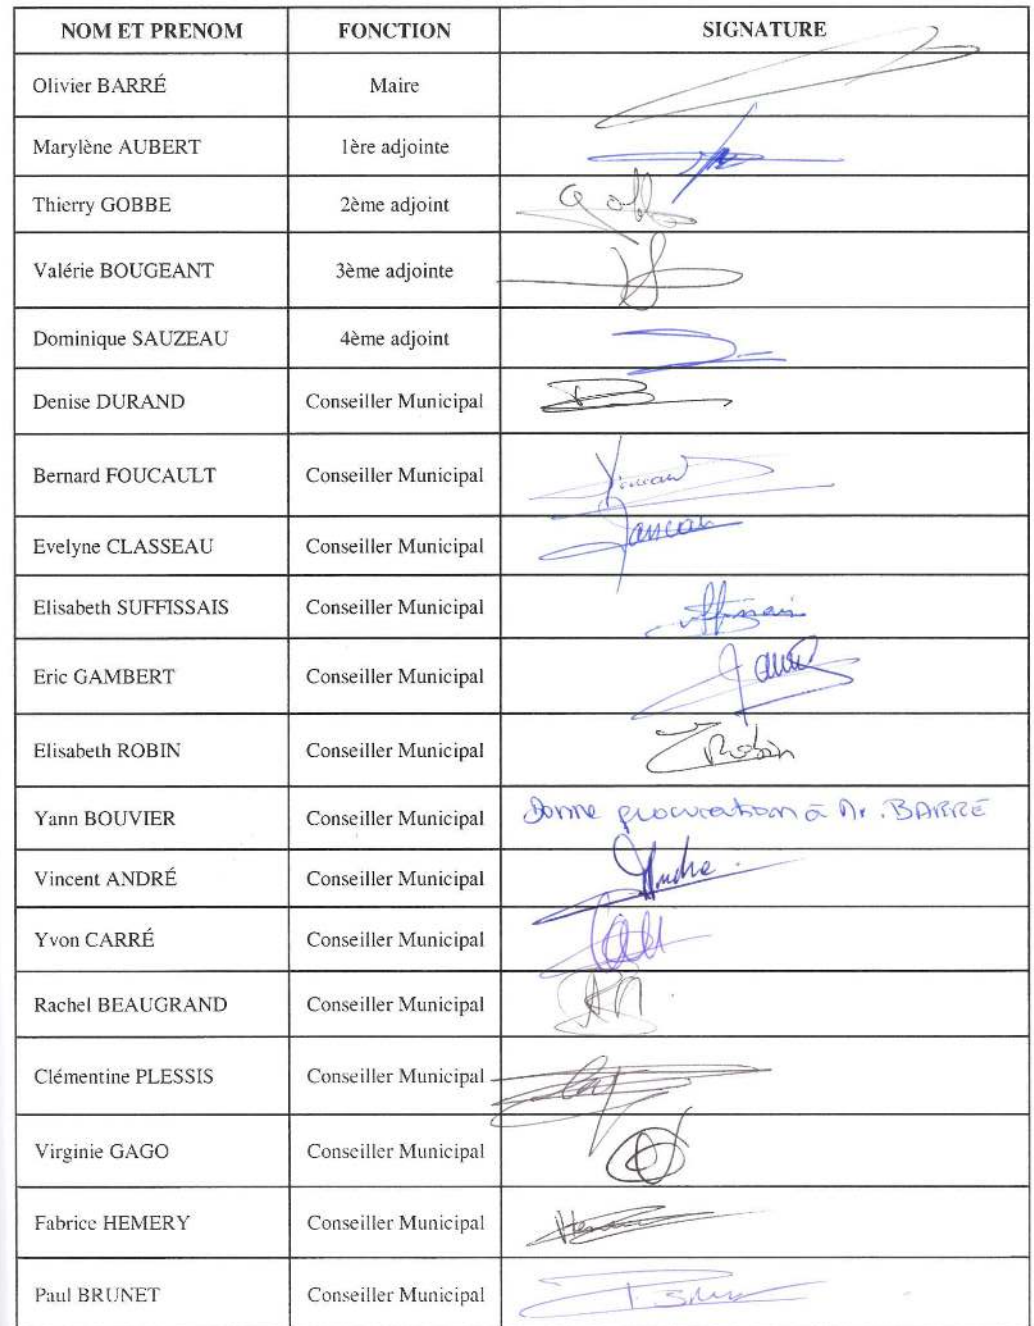 NOM ET PRENOM FONCTION SIGNATURE
Olivier BARRÉ Maire
Marylène AUBERT 1ère adjointe
Thierry GOBBE 2ème adjoint
Valérie BOUGEANT 3ème adjointe
Dominique SAUZEAU 4ème adjoint
Denise DURAND Conseiller Municipal
Bernard FOUCAULT Conseiller Municipal
Evelyne CLASSEAU Conseiller Municipal
Elisabeth SUFFISSAIS Conseiller Municipal
Eric GAMBERT Conseiller Municipal
Elisabeth ROBIN Conseiller Municipal Robin
Yann BOUVIER Conseiller Municipal Donne procuration à Mr. BARRÉ
Vincent ANDRÉ Conseiller Municipal Andre
Yvon CARRÉ Conseiller Municipal
Rachel BEAUGRAND Conseiller Municipal
Clémentine PLESSIS Conseiller Municipal
Virginie GAGO Conseiller Municipal
Fabrice HEMERY Conseiller Municipal
Paul BRUNET Conseiller Municipal